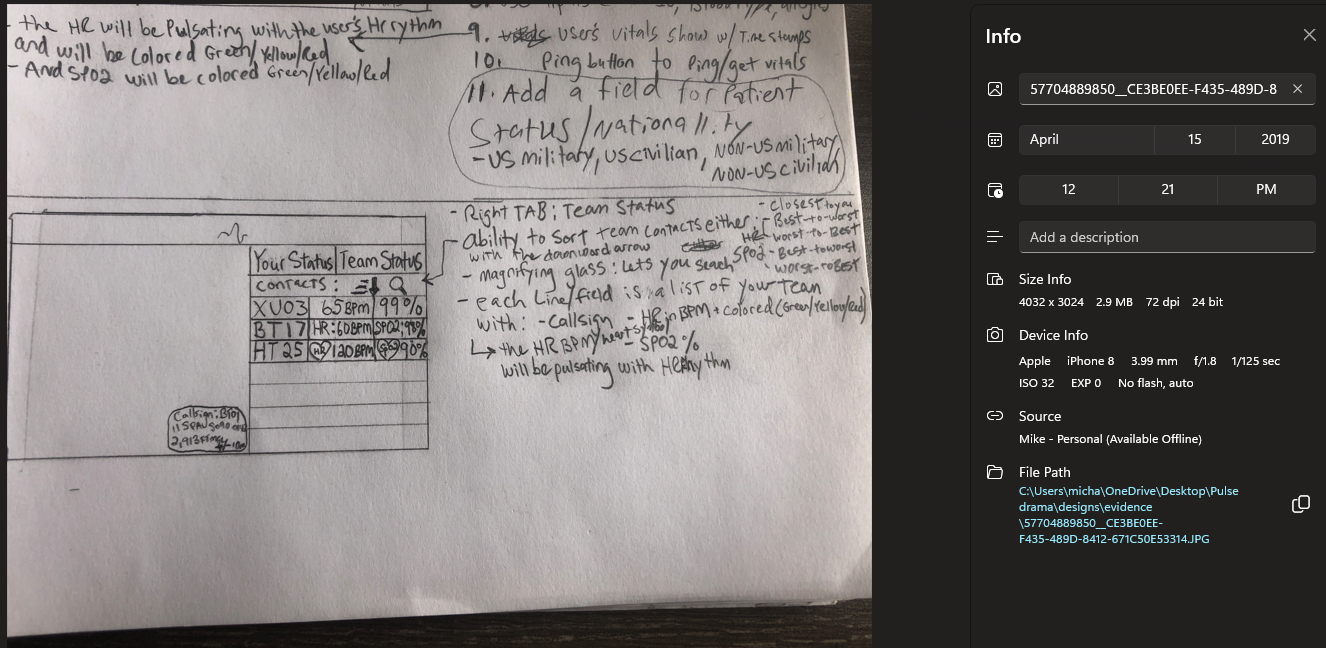 - the HR will be Pulsating with the user's Hr rythm
and will be colored Green/Yellow/Red
- And SPO2 will be colored Green/Yellow/Red
9. user's vitals show w/ Time stamps
10. Ping button to Ping/get vitals
11. Add a field for Patient
Status/Nationality
- US military, US civilian, NON-US military
NON-US civilian
Your Status | Team Status
CONTACTS :
XU03 65 BPM 99%
BT17 HR:60BPM SPO2:98%
HT25 HR 120BPM 90%
Callsign: BT01
- Right TAB: Team Status
- ability to sort team contacts either :
with the downward arrow
- closest to you
HR - Best-to-worst
worst-to-Best
SPO2 - Best-to-worst
worst-to-Best
- magnifying glass: Lets you seach
- each Line/field is a list of your Team
with: - Callsign - HR in BPM + colored (Green/Yellow/Red)
- SPO2 %
the HR BPM/heart symbol
will be pulsating with HR rhythm
Info
57704889850__CE3BE0EE-F435-489D-8
April 15 2019
12 21 PM
Add a description
Size Info
4032 x 3024 2.9 MB 72 dpi 24 bit
Device Info
Apple iPhone 8 3.99 mm f/1.8 1/125 sec
ISO 32 EXP 0 No flash, auto
Source
Mike - Personal (Available Offline)
File Path
C:\Users\micha\OneDrive\Desktop\Pulse
drama\designs\evidence
\57704889850__CE3BE0EE-
F435-489D-8412-671C50E53314.JPG